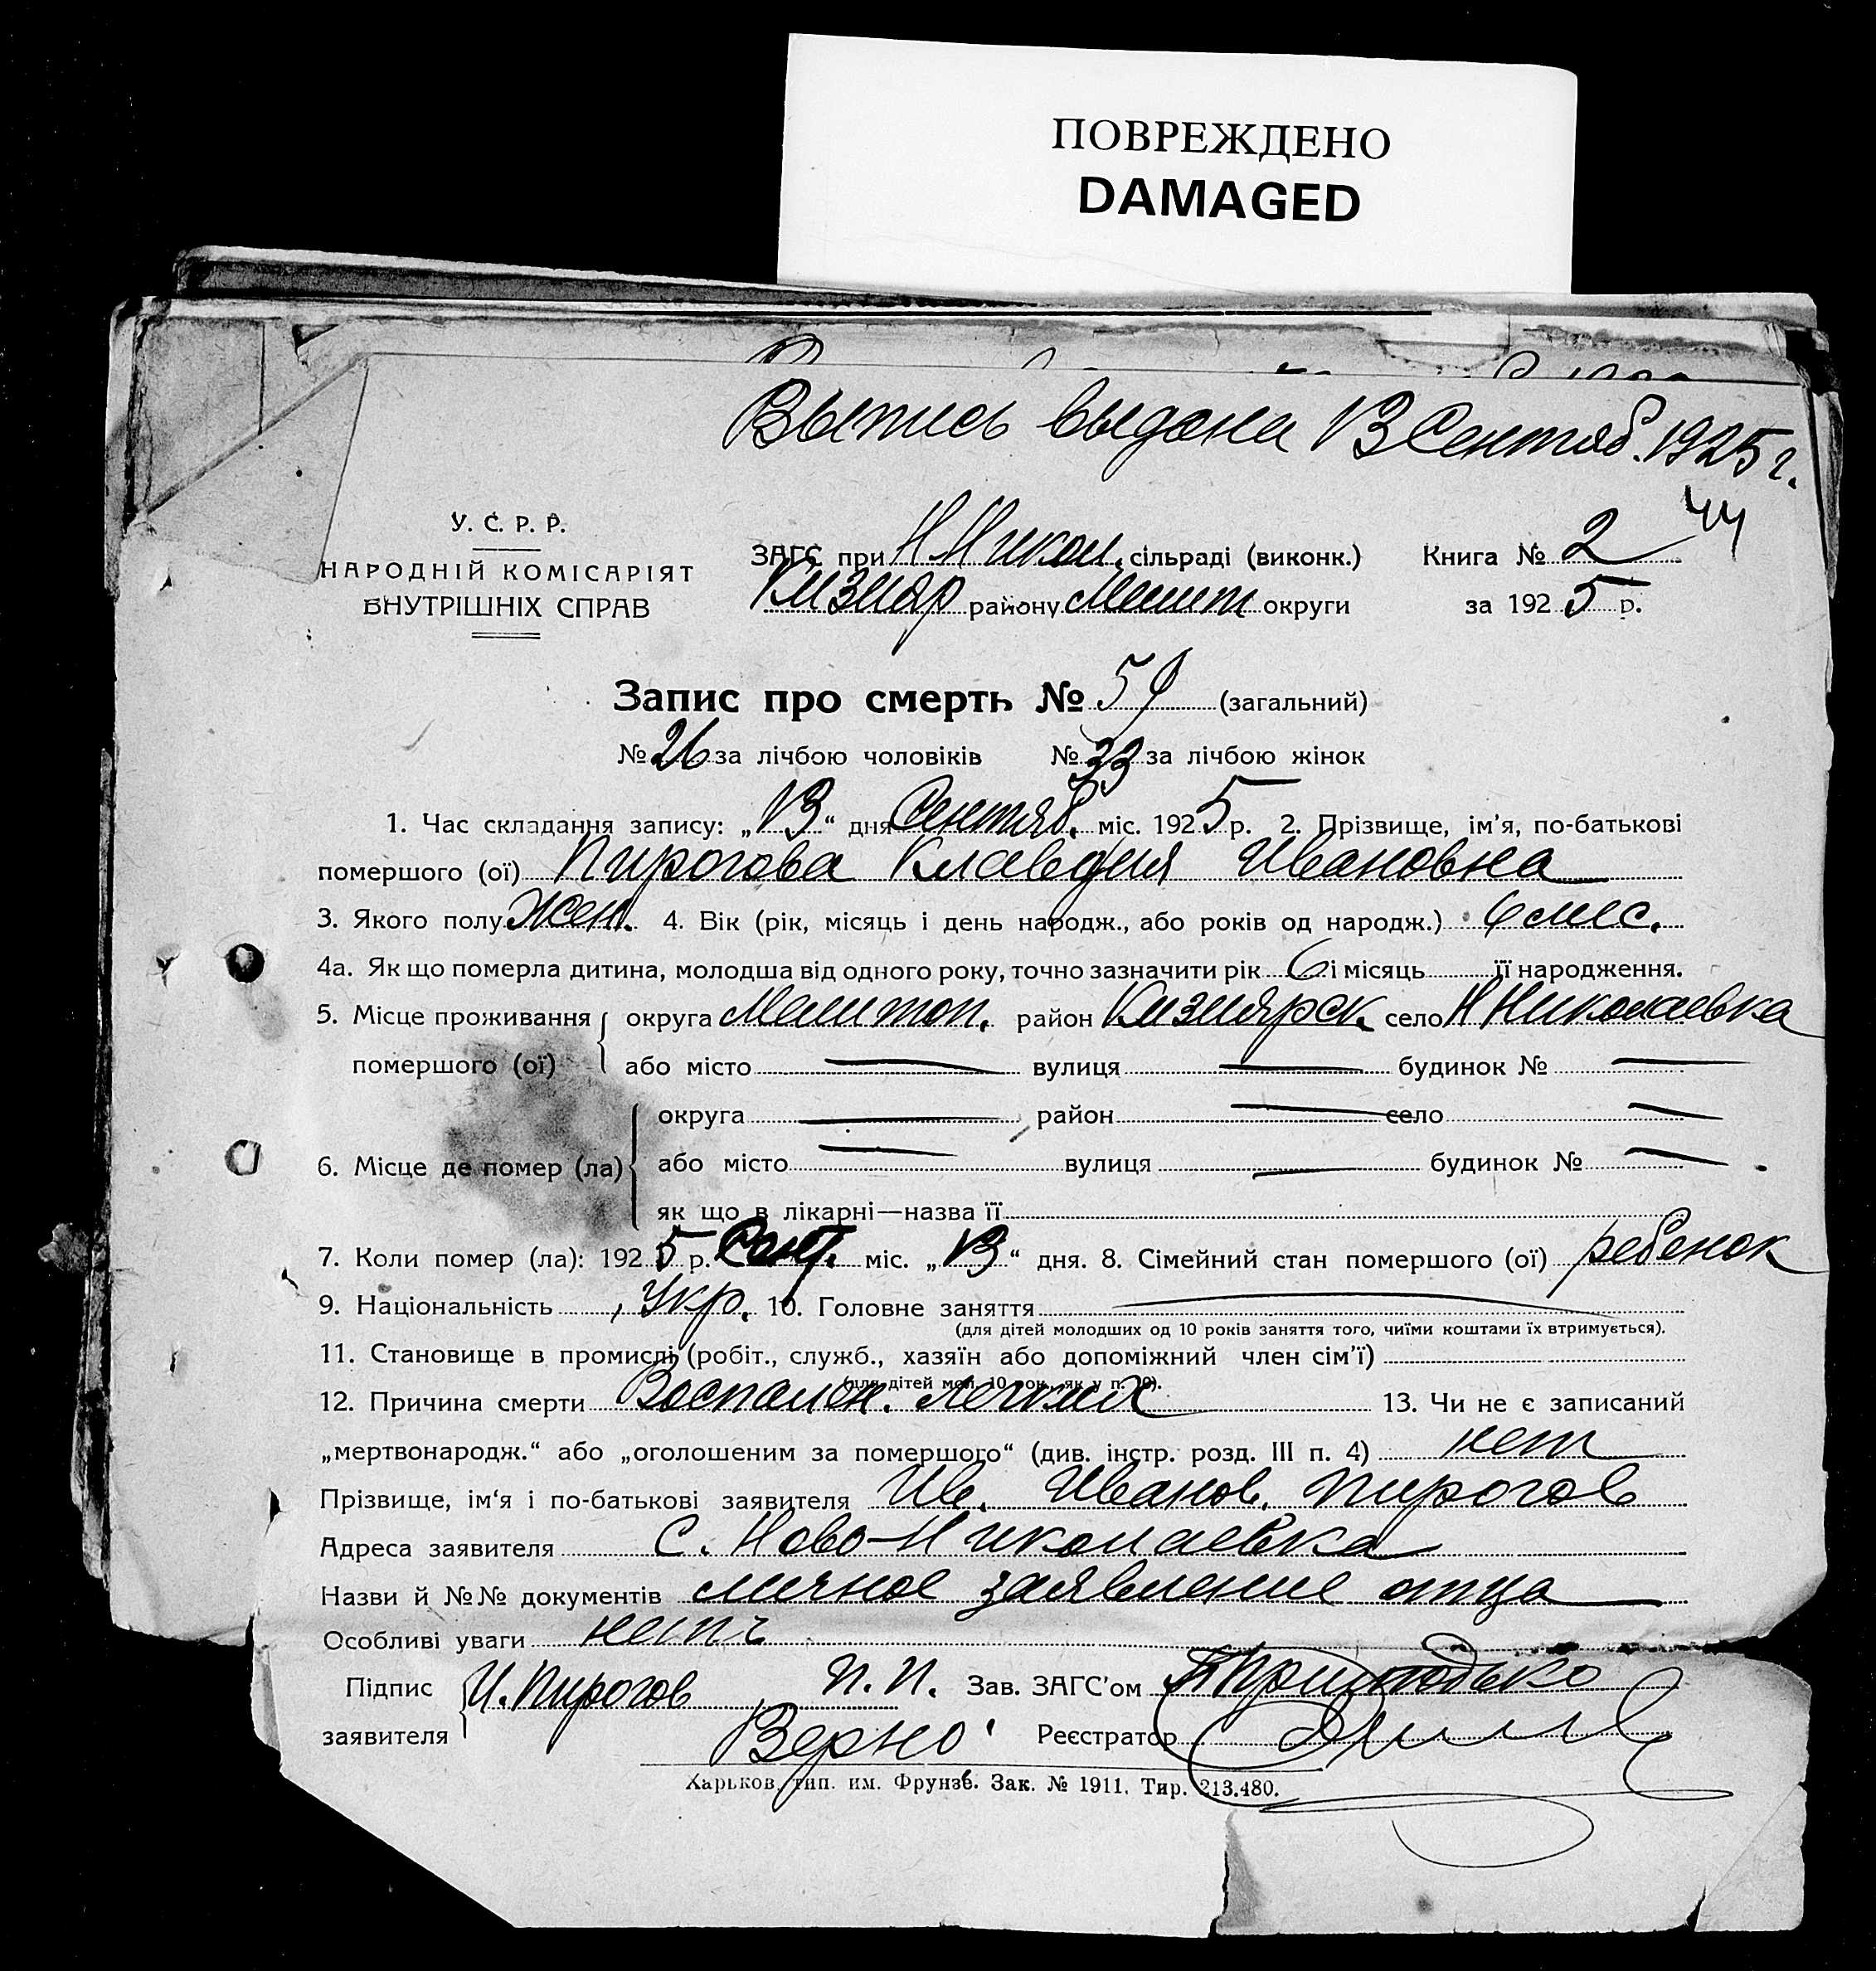 ПОВРЕЖДЕНО
DAMAGED
Выпись выдана 13 Сентяб. 1925 г.
44
У. С. Р. Р.
НАРОДНІЙ КОМІСАРІЯТ
ВНУТРІШНІХ СПРАВ
ЗАГС при Н Никол. сільраді (виконк.) Книга № 2
Кизияр району Мелит округи за 1925 р.
Запис про смерть № 59 (загальний)
№ 26 за лічбою чоловіків № 33 за лічбою жінок
1. Час складання запису: „13“ дня Сентяб. міс. 1925 р. 2. Прізвище, ім'я, по-батькові
помершого (ої) Пирогова Клавдия Ивановна
3. Якого полу Жен. 4. Вік (рік, місяць і день народж., або років од народж.) 6 мес.
4а. Як що померла дитина, молодша від одного року, точно зазначити рік 6 і місяць її народження.
5. Місце проживання помершого (ої) округа Мелитоп. район Кизиярск. село Н Николаевка
або місто — вулиця — будинок № —
6. Місце де помер (ла) округа — район — село —
або місто — вулиця — будинок № —
як що в лікарні—назва її
7. Коли помер (ла): 1925 р. Сент. міс. „13“ дня. 8. Сімейний стан помершого (ої) ребенок
9. Національність Укр. 10. Головне заняття —
(для дітей молодших од 10 років заняття того, чиїми коштами їх втримується).
11. Становище в промислі (робіт., служб., хазяїн або допоміжний член сім'ї)
(для дітей мол. 10 рок., як у п. 10).
12. Причина смерти Воспален. легких 13. Чи не є записаний
„мертвонародж.“ або „оголошеним за помершого“ (див. інстр. розд. III п. 4) нет
Прізвище, ім'я і по-батькові заявителя Ив. Иванов. Пирогов
Адреса заявителя С. Ново-Николаевка
Назви й №№ документів личное заявление отца
Особливі уваги нетъ
Підпис заявителя И. Пирогов П. П. Зав. ЗАГС'ом Приходько
Верно: Реєстратор
Харьков, тип. им. Фрунзе. Зак. № 1911. Тир. 213.480.